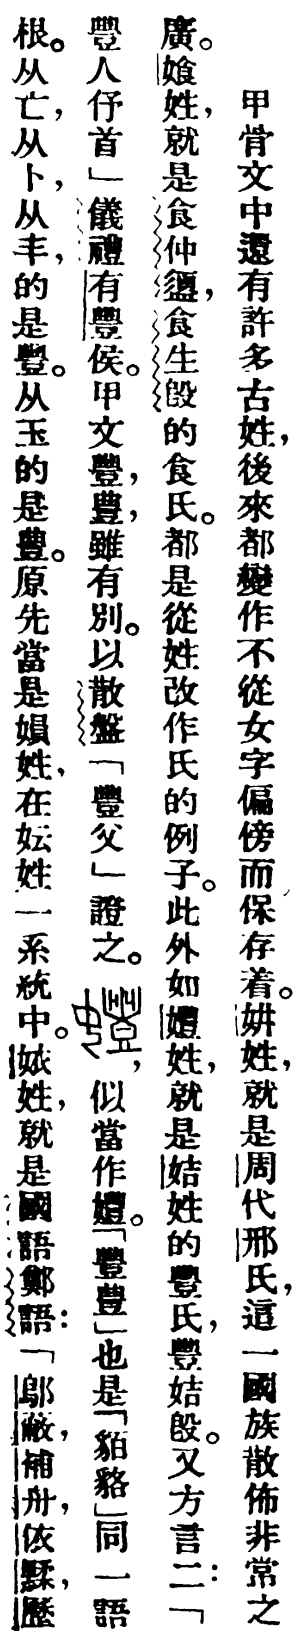 甲骨文中還有許多古姓，後來都變作不從女字偏傍而保存着。妌姓，就是周代邢氏，這一國族散佈非常之
廣。飧姓，就是食仲盨，食生殷的食氏。都是從姓改作氏的例子。此外如嬗姓，就是姞姓的豐氏，豐姞殷。又方言二：「
豐人仔首」儀禮有豐侯。甲文豐，豊，雖有別。以散盤「豐父」證之。，似當作嬗。「豐豊」也是「貊貉」同一語
根。从亡，从卜，从丰，的是豐。从玉的是豊。原先當是娊姓，在妘姓一系統中。㛄姓，就是國語鄭語：「鄔敝，補舟，依𩏂，歷